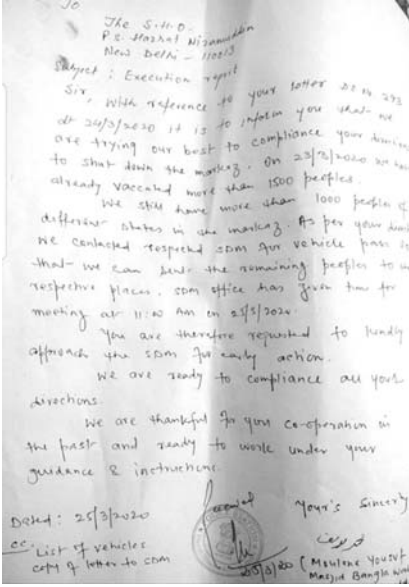 To
The S.H.O.
P.S. Hazrat Nizamuddin
New Delhi - 110013
Subject : Execution report
Sir,
With reference to your letter DD no 293
dt 24/3/2020 it is to inform you that we
are trying our best to compliance your
to shut down the markaz. On 23/3/2020 we have
already vaccated more than 1500 peoples.
We still have more than 1000 peoples of
different states in the markaz. As per your
we contacted respected SDM for vehicle pass so
that we can sent the remaining peoples to
respective places. SDM office has given time for
meeting at 11:00 AM on 25/3/2020.
You are therefore requested to kindly
approach the SDM for early action.
We are ready to compliance all your
directions.
We are thankful for your co-operation in
the past and ready to work under your
guidance & instructions.
Received
Your's Sincerely
Dated : 25/3/2020
cc. List of vehicles
copy of letter to SDM
25/3/20
(Maulana Yousuf
Masjid Bangla